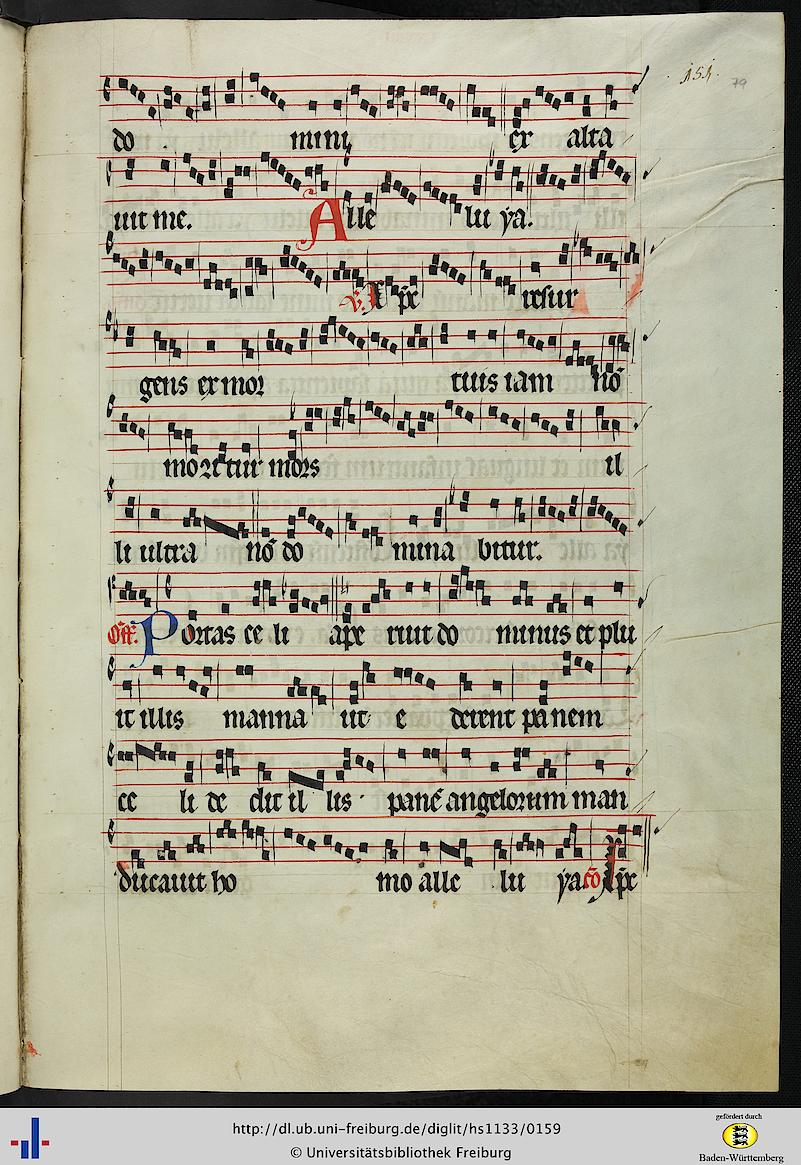 151.
79
do mini ex alta
uit me. Alle lu ya.
℣. Xp̄c resur
gens ex mor tuis iam nō
moritur mors il
li ultra nō do mina bitur.
Off. Portas ce li ape ruit do minus et plu
it illis manna ut e derent panem
ce li de dit il lis · panē angelorum man
ducauit ho mo alle lu ya. cō xp̄c
http://dl.ub.uni-freiburg.de/diglit/hs1133/0159
© Universitätsbibliothek Freiburg
gefördert durch
Baden-Württemberg